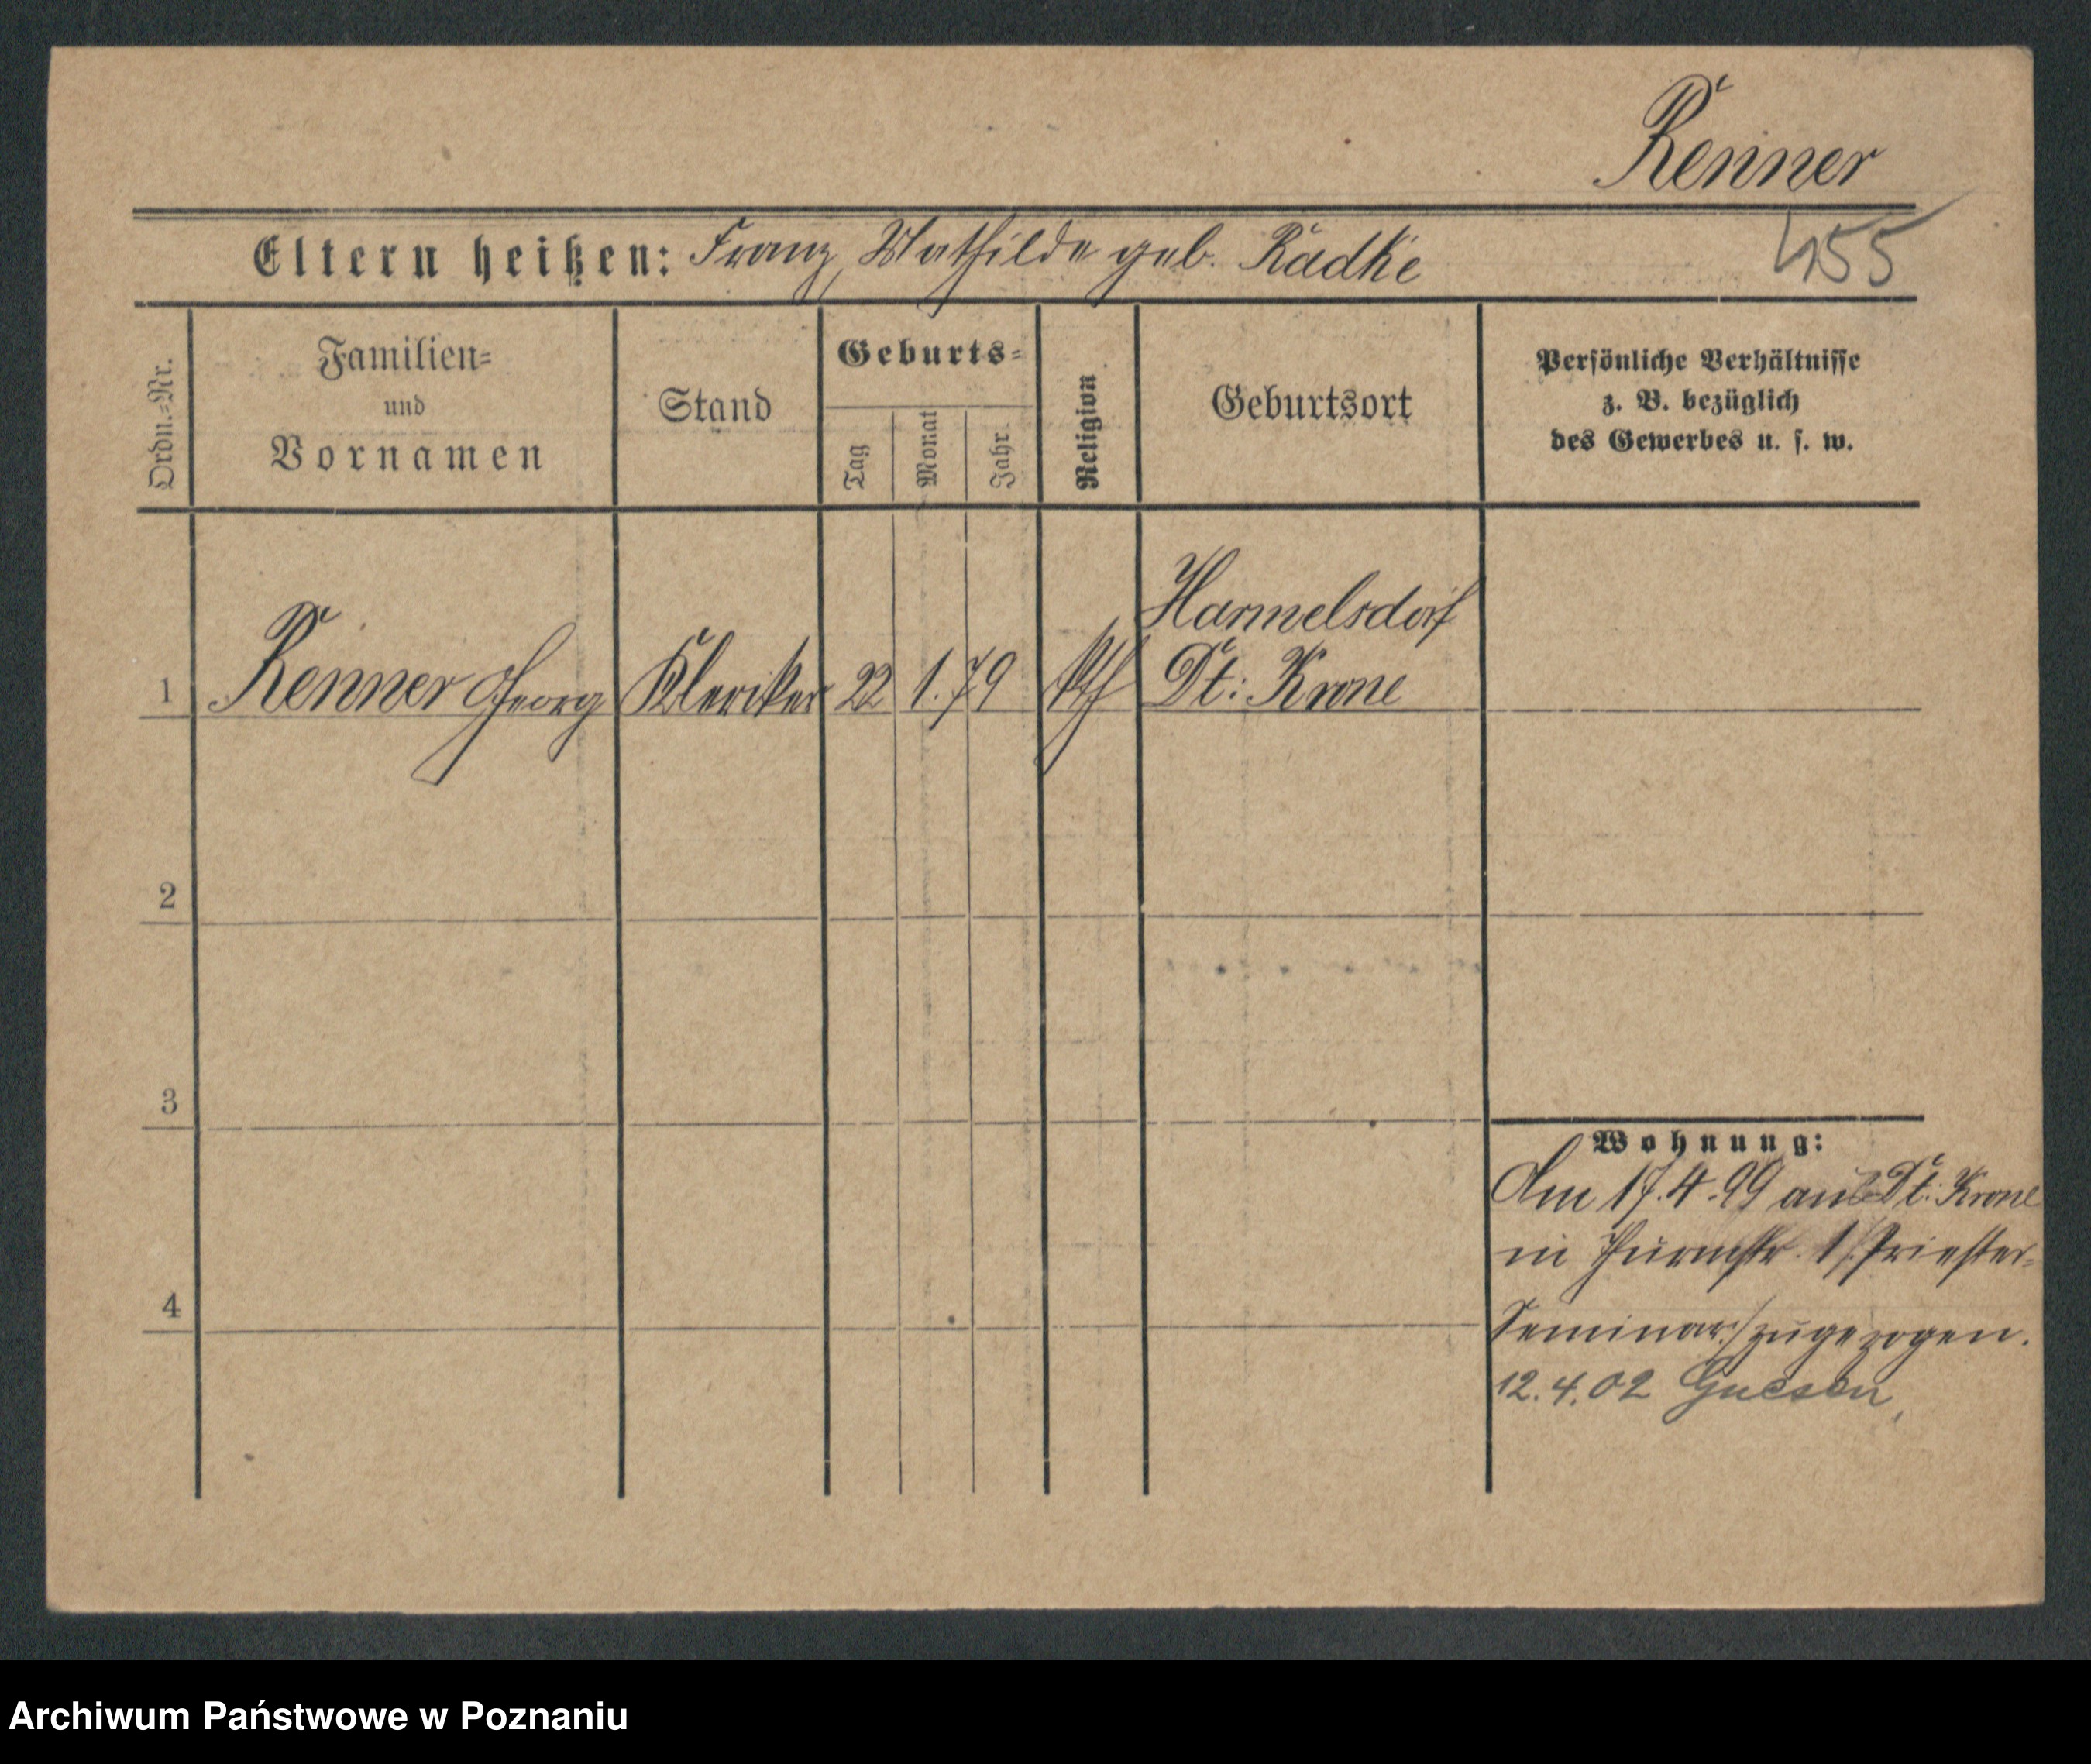 Renner
Eltern heißen: Franz, Mathilde geb. Radke
455
Ordn.-Nr.
Familien=
und
Vornamen
Stand
Geburts=
Tag
Monat
Jahr.
Religion
Geburtsort
Persönliche Verhältnisse
z. B. bezüglich
des Gewerbes u. s. w.
Harmelsdorf
1 Renner Georg Kleriker 22 1. 79 kth Dt: Krone
2
3
4
Wohnung:
Am 17.4.99 aus Dt: Krone
in Thurmstr. 1 /:Priester-
Seminar:/ zugezogen.
12.4.02 Gnesen,
Archiwum Państwowe w Poznaniu